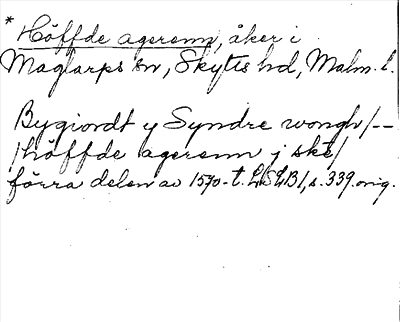 * Höffde agerenn, åker i
Maglarps sn, Skytts hd, Malm. l.
Bygiordt y Syndre wongh /--
/höffde agerenn j ske/
förra delen av 1570-t. LSLB1, s. 339. orig.